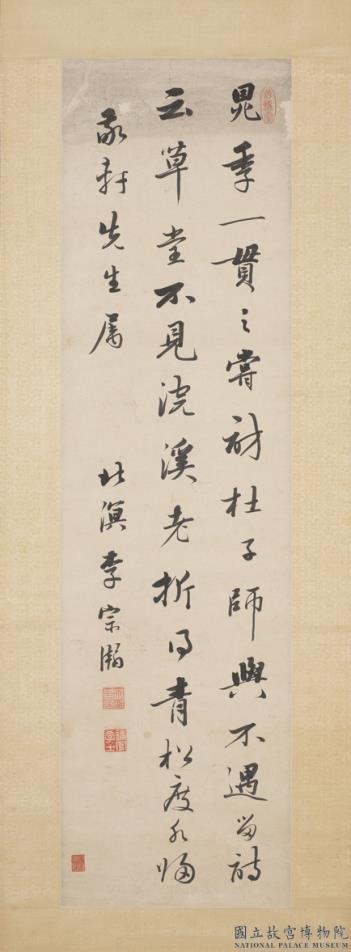 晁季一貫之嘗訪杜子師輿不遇留詩
云草堂不見浣溪老折得青松度水歸
敬軒先生属
北溟李宗瀚
國立故宮博物院
NATIONAL PALACE MUSEUM